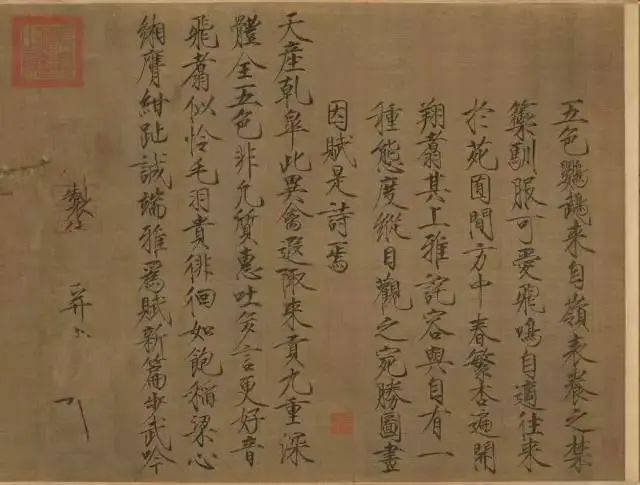 五色鸚鵡来自嶺表養之禁
籞馴服可愛飛鳴自適往来
於苑囿間方中春繁杏遍開
翔翥其上雅詫容與自有一
種態度縱目觀之宛勝圖畫
因賦是詩焉
天產乹皐此異禽遐陬来貢九重深
體全五色非凡質惠吐多言更好音
飛翥似怜毛羽貴徘徊如飽稻粱心
緗膺紺趾誠端雅爲賦新篇步武吟
製
并